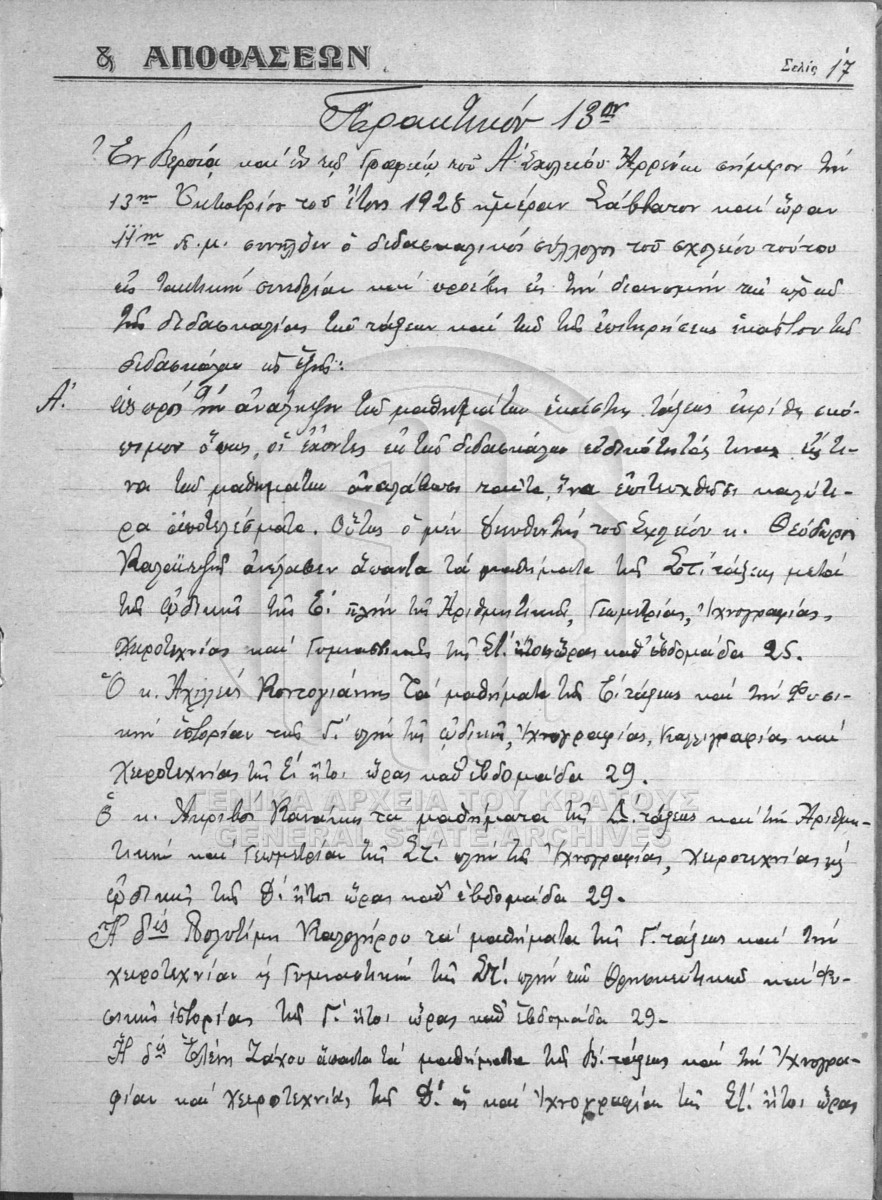 & ΑΠΟΦΑΣΕΩΝ
Σελίς 17
Πρακτικόν 13ον
Ἐν Βεροίᾳ καὶ ἐν τῷ Γραφείῳ τοῦ Α΄ Σχολείου Ἀρρένων σήμερον τὴν
13ην Ὀκτωβρίου τοῦ ἔτους 1928 ἡμέραν Σάββατον καὶ ὥραν
11ην π.μ. συνῆλθεν ὁ διδασκαλικὸς σύλλογος τοῦ σχολείου τούτου
εἰς τακτικὴν συνεδρίαν καὶ προέβη εἰς τὴν διανομὴν τῶν ὡρῶν
τῆς διδασκαλίας τῶν τάξεων καὶ τῆς ἐπιτηρήσεως ἑκάστου τῶν
διδασκάλων ὡς ἑξῆς:
Α΄. ὡς πρὸς τὴν ἀνάληψιν τῶν μαθημάτων ἑκάστης τάξεως ἐκρίθη σκό-
πιμον ὅπως, οἱ ἔχοντες ἐκ τῶν διδασκάλων εἰδικότητάς τινας εἴς τι-
να τῶν μαθημάτων ἀναλάβωσι ταῦτα, ἵνα ἐπιτευχθῶσι καλύτε-
ρα ἀποτελέσματα. Οὕτως ὁ μὲν διευθυντὴς τοῦ Σχολείου κ. Θεόδωρος
ἀνέλαβεν ἅπαντα τὰ μαθήματα τῆς Στ΄. τάξεως μετὰ
τῆς ᾠδικῆς τῆς Ε΄. πλὴν τῆς Ἀριθμητικῆς, Γεωμετρίας, Ἰχνογραφίας,
Χειροτεχνίας καὶ Γυμναστικῆς τῆς Στ΄. ἤτοι ὥρας καθ' ἑβδομάδα 25.
Ὁ κ. Ἀχιλλεὺς Κοντογιάννης τὰ μαθήματα τῆς Ε΄. τάξεως καὶ τὴν Φυσι-
κὴν ἱστορίαν τῆς Γ΄. πλὴν τῆς ᾠδικῆς, Ἰχνογραφίας, Καλλιγραφίας καὶ
Χειροτεχνίας τῆς Ε΄ ἤτοι ὥρας καθ' ἑβδομάδα 29.
Ὁ κ. τὰ μαθήματα τῆς Δ. τάξεως καὶ τὴν Ἀριθμη-
τικὴν καὶ Γεωμετρίαν τῆς Στ΄. πλὴν τῆς Ἰχνογραφίας, Χειροτεχνίας καὶ
ᾠδικῆς τῆς Δ΄. ἤτοι ὥρας καθ' ἑβδομάδα 29.
Ἡ δὶς Πολυτίμη Καλογήρου τὰ μαθήματα τῆς Γ΄. τάξεως καὶ τὴν
χειροτεχνίαν καὶ Γυμναστικὴν τῆς Στ΄. πλὴν τῶν Θρησκευτικῶν καὶ Φυ-
σικῆς ἱστορίας τῆς Γ΄ ἤτοι ὥρας καθ' ἑβδομάδα 29.
Ἡ δὶς Ἑλένη Ζάχου ἅπαντα τὰ μαθήματα τῆς Β΄. τάξεως καὶ τὴν Ἰχνογρα-
φίαν καὶ Χειροτεχνίας τῆς Δ΄. ὡς καὶ Ἰχνογραφίαν τῆς Στ΄. ἤτοι ὥρας
ΓΕΝΙΚΑ ΑΡΧΕΙΑ ΤΟΥ ΚΡΑΤΟΥΣ
GENERAL STATE ARCHIVES